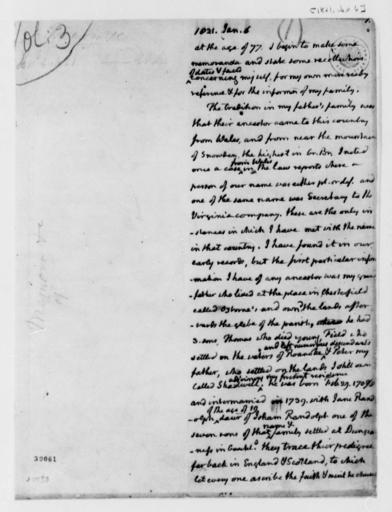 1821. Jan. 6
at the age of 77. I begin to make some
memoranda and state some recollections
of dates & facts
concerning myself, for my own more ready
reference & for the information of my family.
The tradition in my father's family was
that their ancestor came to this country
from Wales, and from near the mountain
of Snowdon, the highest in Gr. Br. I noted
from Wales
once a case in the law reports where a
person of our name was either pl. or def. and
one of the same name was Secretary to the
Virginia company. these are the only in
-stances in which I have met with the name
in that country. I have found it in our
early records, but the first particular infor
-mation I have of any ancestor was my gran
-father who lived at the place in Chesterfield
called Osborne's and own'd the lands after
-wards the glebe of the parish, he had
3. sons, Thomas who died young, Field who
and left numerous descendants
settled on the waters of Roanoke & Peter my
father, who settled on the lands I still own
adjoining my present residence
called Shadwell. he was born Feb. 29. 1707/8
and intermarried in 1739. with Jane Rand
of the age of 19
-olph, daur of Isham Randolph one of the
name &
seven sons of that family settled at Dunge
-ness in Goochld. they trace their pedigree
far back in England & Scotland, to which
let every one ascribe the faith & merit he chuses
39061